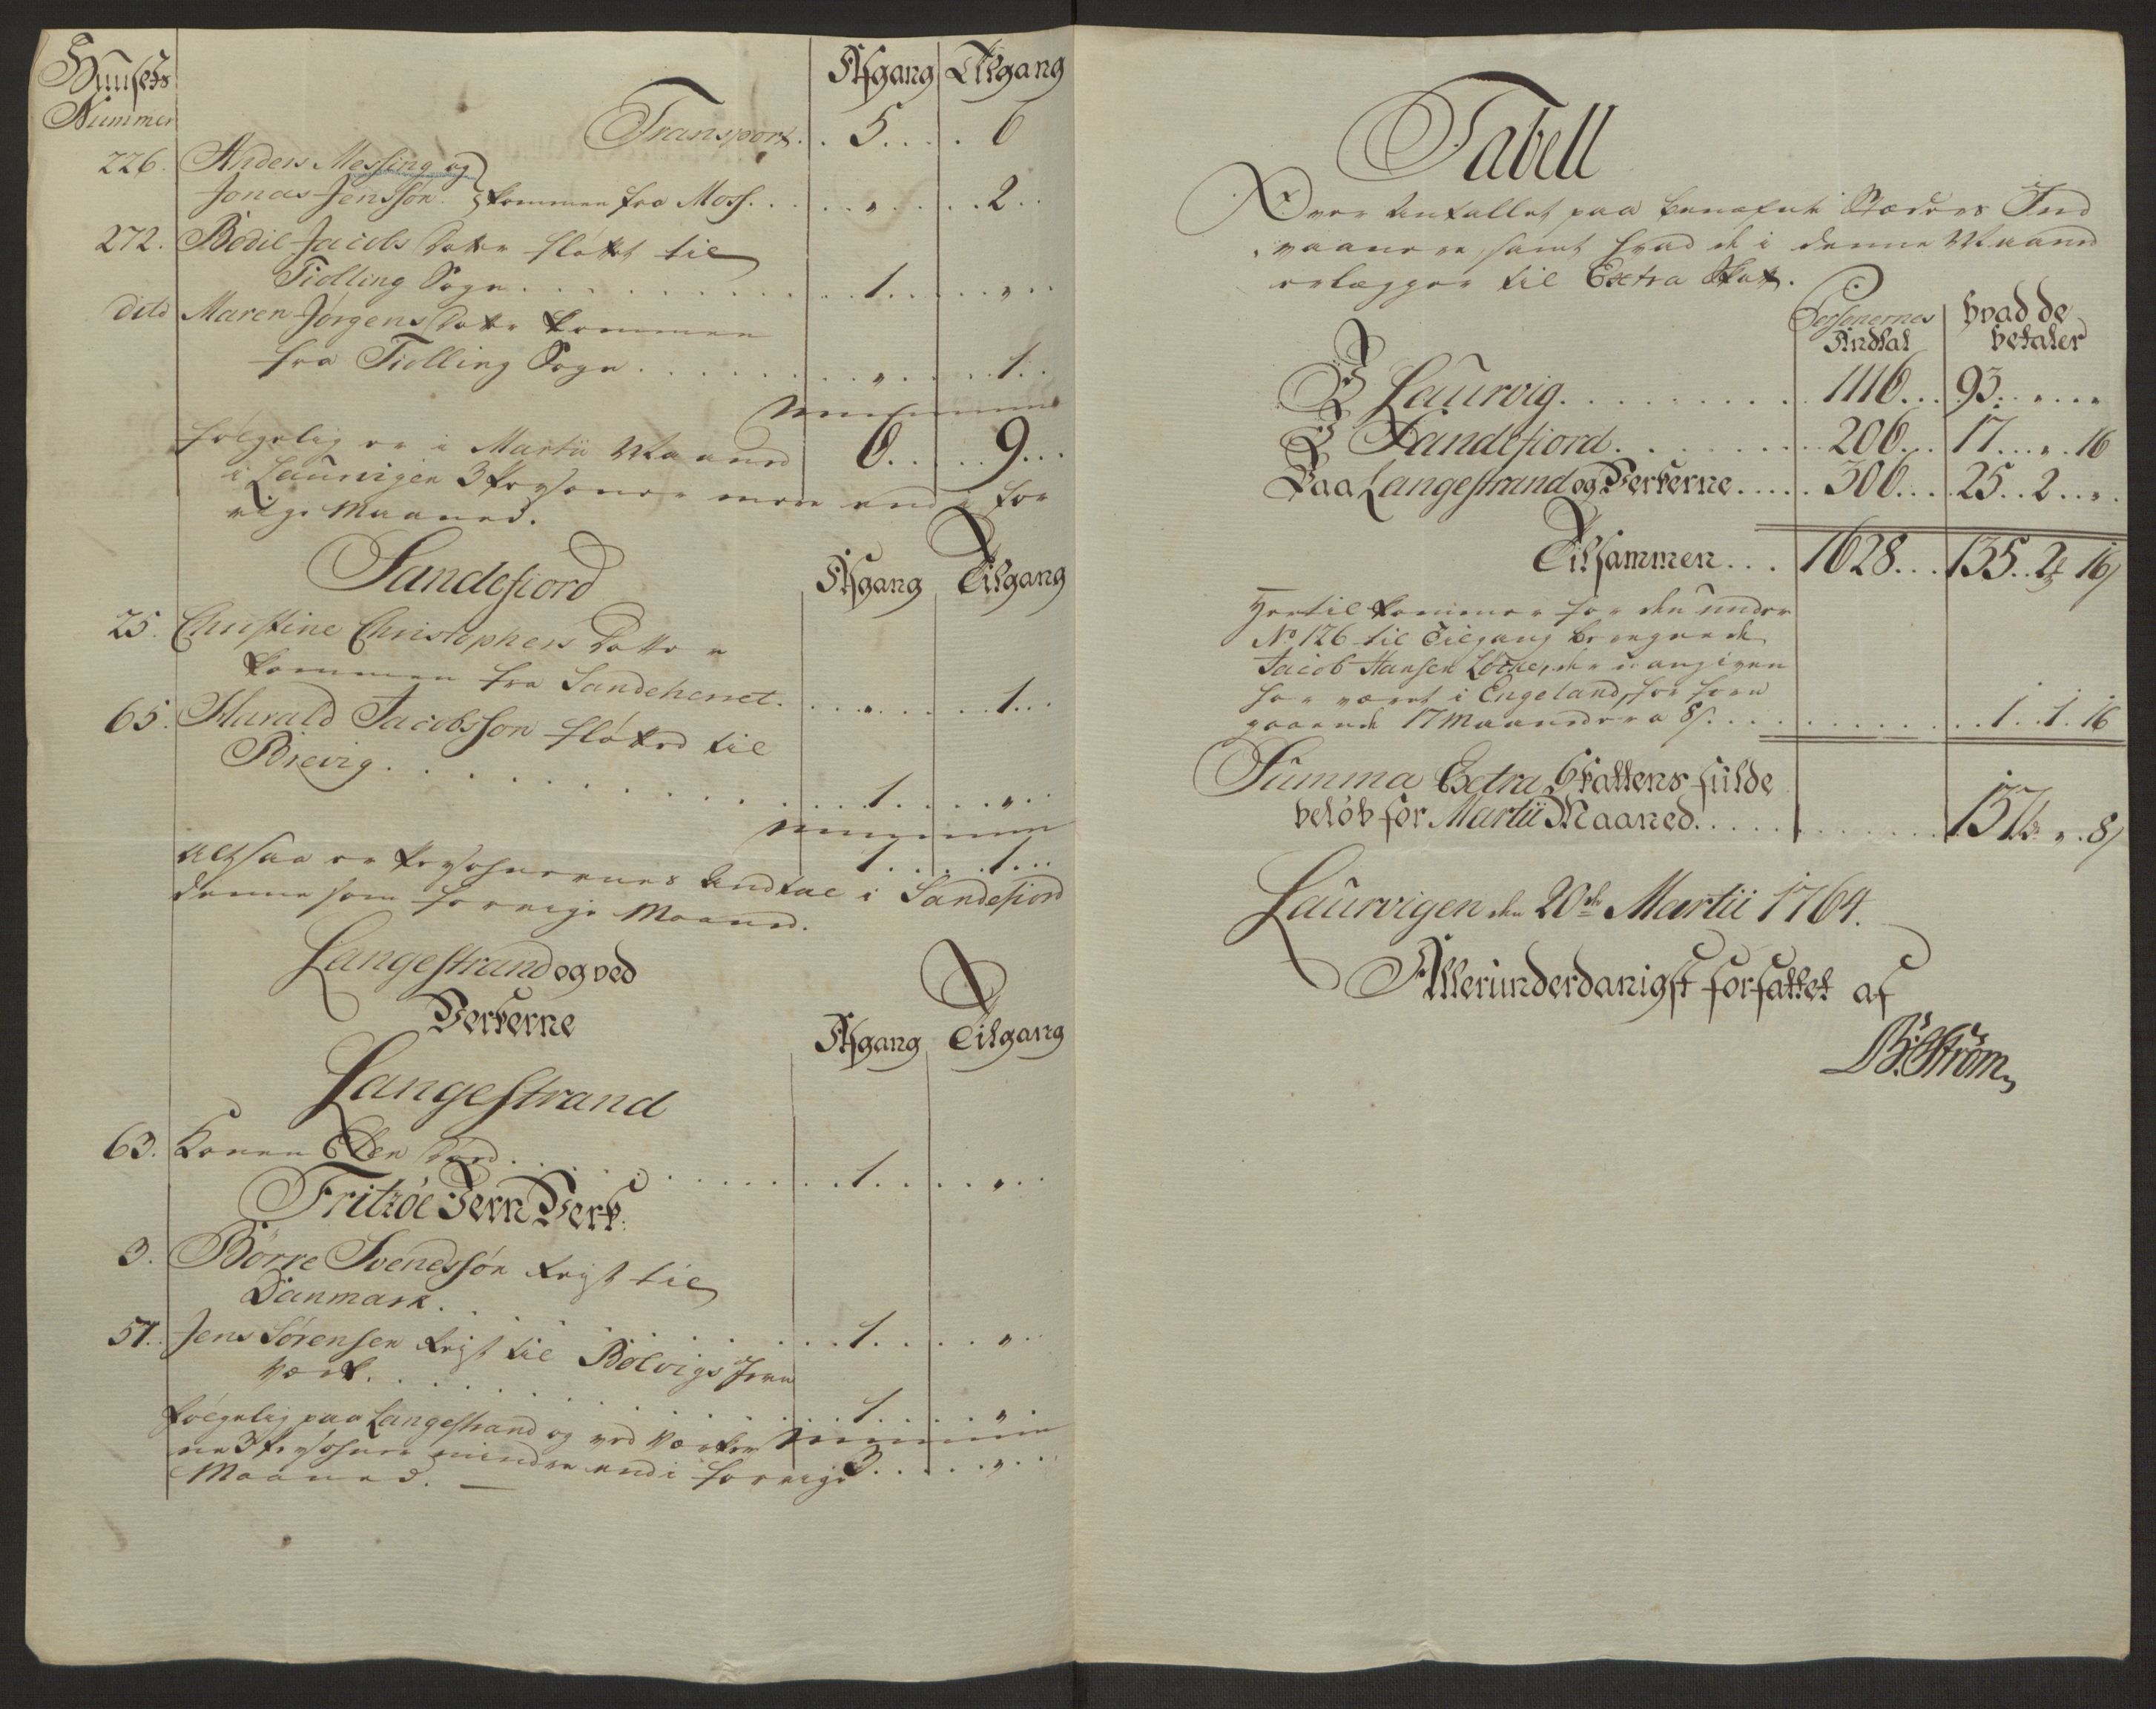 Huusets Nummer
Afgang Tilgang
Transport . . 5 . . . . 6
226. Anders Messing og
Jonas Jensson. kommen fra Moss. . . . „ . . . . 2 . .
272. Bodil Jacobs Datter fløttet til
Tiølling Sogn . . . . . 1 . . . . „ . .
dito Maren Jørgens Datter kommen
fra Tiølling Sogn . . . . . „ . . . . 1 . .
6 . . . . 9 . . .
følgelig er i Martii Maaned
i Laurvigen 3 Persohner mere end i for
rige Maaned.
Sandefiord
Afgang Tilgang
25. Christine Christophers Datter
kommen fra Sandeherret. . . . „ . . . . 1 . . .
65. Harald Jacobsson fløtted til
Brevig . . . . . 1 . . . . „ . .
1 . . . . 1 . . .
altsaa er Persohnernes Andtal i Sandefiord
denne som forrige Maaned.
Langestrand og ved
Verkerne
Afgang Tilgang
Langestrand
63. Konen Ellen død . . . . . 1 . . . . „ . .
Fritzöe Jern Verk.
3. Börre Svendssön reyst til
Danmark. . . . . 1 . . . . „ . .
57. Jens Sörensen reyst til Bolvigs Jern
Værk. . . . . 1 . . . . „ . .
følgelig paa Langestrand og ved Værker
ne 3 Persohner mindre end i forrige 3 . . . . „ . . .
Maaned. —
Tabell
Over Antallet paa benæfnte Stæders Ind
vaanere, samt hvad de i denne Maaned
erlægger til Extra Skat.
Personernes Andtal
hvad de betaler
I Laurvig. . . . . 1116 . . . 93 . . „ . . „
I Sandefiord . . . . . 206 . . . 17 . . „ . 16
Paa Langestrand og Verkerne . . . . . 306 . . . 25 . . 2 . . „
Tilsammen . . . 1628 . . . 135 . . 2 16
Hertil kommer for den under
No 126 til Tilgang beregnede
Jacob Hansen Löcke, der uangiven
har været i Engeland, for forn
gaaende 17 Maaneder a 8 s . . . . . 1 . . 1 . 16
Summa Extra Skattens fulde
beløb for Martii Maaned . . . . . 137 „ . 8
Laurvigen den 20de Martii 1764.
Allerunderdanigst forfattet af
Ström